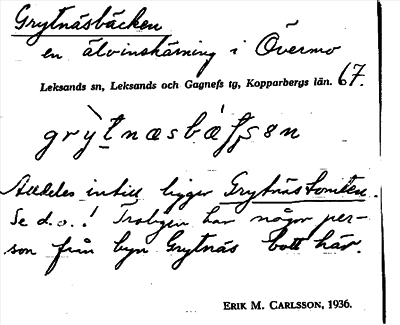 Grytnäsbäcken
en älvinskärning i Övermo
Leksands sn, Leksands och Gagnefs tg, Kopparbergs län. 67.
grỳtnæsbæ̀ʃsɘn
Alldeles intill ligger Grytnästomten.
Se d.o.! Troligen har någon per-
son från byn Grytnäs bott här.
ERIK M. CARLSSON, 1936.